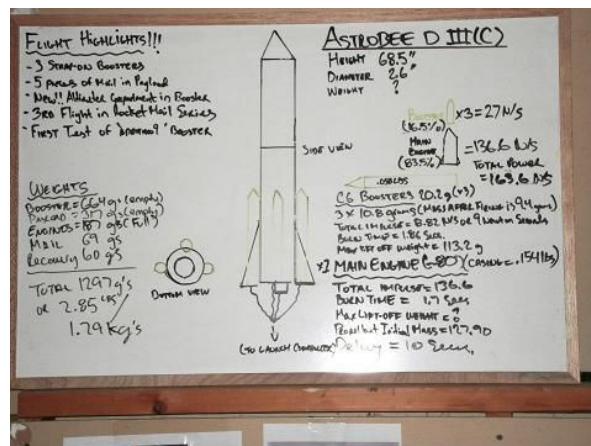 FLIGHT HIGHLIGHTS!!!
- 3 STRAP-ON BOOSTERS
- 5 pieces of Mail in Payload
- New!! Altimeter Compartment in Booster
- 3RD Flight in Rocket Mail Series
- FIRST TEST OF BOOSTER
WEIGHTS
BOOSTER = 664 gs (empty)
PAYLOAD = 317 gs (empty)
ENGINES = 187 gs (Full)
MAIL 69 g's
Recovery 60 g's
TOTAL 1297 g's
OR 2.85 LBS
1.79 Kg's
BOTTOM VIEW
SIDE VIEW
(TO LAUNCH CONTROLLER)
ASTROBEE D III(C)
HEIGHT 68.5"
DIAMETER 2.6"
WEIGHT ?
x3 = 27 N/S
(16.5%)
MAIN ENGINE
(83.5%)
= 136.6 N/S
TOTAL POWER
= 163.6 N/S
C6 BOOSTERS 20.2g (x3)
3 x 10.8 grams (MASS AFTER FIRING is 9.4 grams)
TOTAL IMPULSE = 8.82 N/S OR 9 Newton Seconds
BURN TIME = 1.86 Secs.
MAX LIFT OFF Weight = 113.2 g
MAIN ENGINE G-80 (CASING = .154 lbs)
TOTAL IMPULSE = 136.6
BURN TIME = 1.7 Secs
MAX LIFT-OFF WEIGHT = ?
Propellant Initial Mass = 127.90
Delay = 10 Secs.